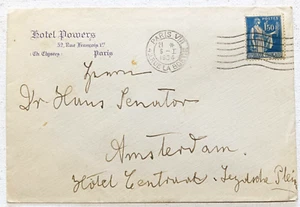 Hotel Powers
52, Rue François 1er
Paris
PARIS VIII
POSTES
1F50
Herrn
Dr. Hans Senator
Amsterdam.
Hôtel Centraal - Leydsche Plein